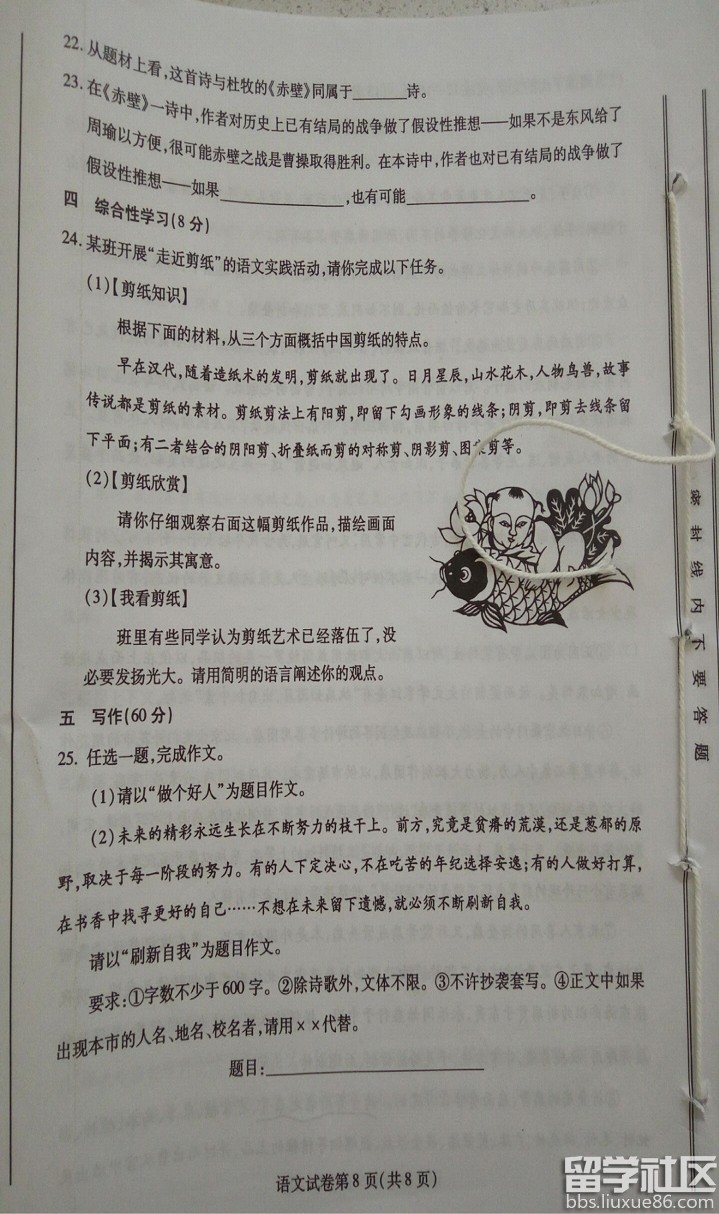 22. 从题材上看,这首诗与杜牧的《赤壁》同属于______诗。
23. 在《赤壁》一诗中,作者对历史上已有结局的战争做了假设性推想——如果不是东风给了
周瑜以方便,很可能赤壁之战是曹操取得胜利。在本诗中,作者也对已有结局的战争做了
假设性推想——如果______________,也有可能______________。
四 综合性学习(8分)
24. 某班开展“走近剪纸”的语文实践活动,请你完成以下任务。
(1)【剪纸知识】
根据下面的材料,从三个方面概括中国剪纸的特点。
早在汉代,随着造纸术的发明,剪纸就出现了。日月星辰,山水花木,人物鸟兽,故事
传说都是剪纸的素材。剪纸剪法上有阳剪,即留下勾画形象的线条;阴剪,即剪去线条留
下平面;有二者结合的阴阳剪、折叠纸而剪的对称剪、阴影剪、图剪等。
(2)【剪纸欣赏】
请你仔细观察右面这幅剪纸作品,描绘画面
内容,并揭示其寓意。
(3)【我看剪纸】
班里有些同学认为剪纸艺术已经落伍了,没
必要发扬光大。请用简明的语言阐述你的观点。
五 写作(60分)
25. 任选一题,完成作文。
(1)请以“做个好人”为题目作文。
(2)未来的精彩永远生长在不断努力的枝干上。前方,究竟是贫瘠的荒漠,还是葱郁的原
野,取决于每一阶段的努力。有的人下定决心,不在吃苦的年纪选择安逸;有的人做好打算,
在书香中找寻更好的自己……不想在未来留下遗憾,就必须不断刷新自我。
请以“刷新自我”为题目作文。
要求:①字数不少于600字。②除诗歌外,文体不限。③不许抄袭套写。④正文中如果
出现本市的人名、地名、校名者,请用××代替。
题目:________________________
语文试卷第8页(共8页)
密封线内不要答题
留学社区
bbs.liuxue86.com